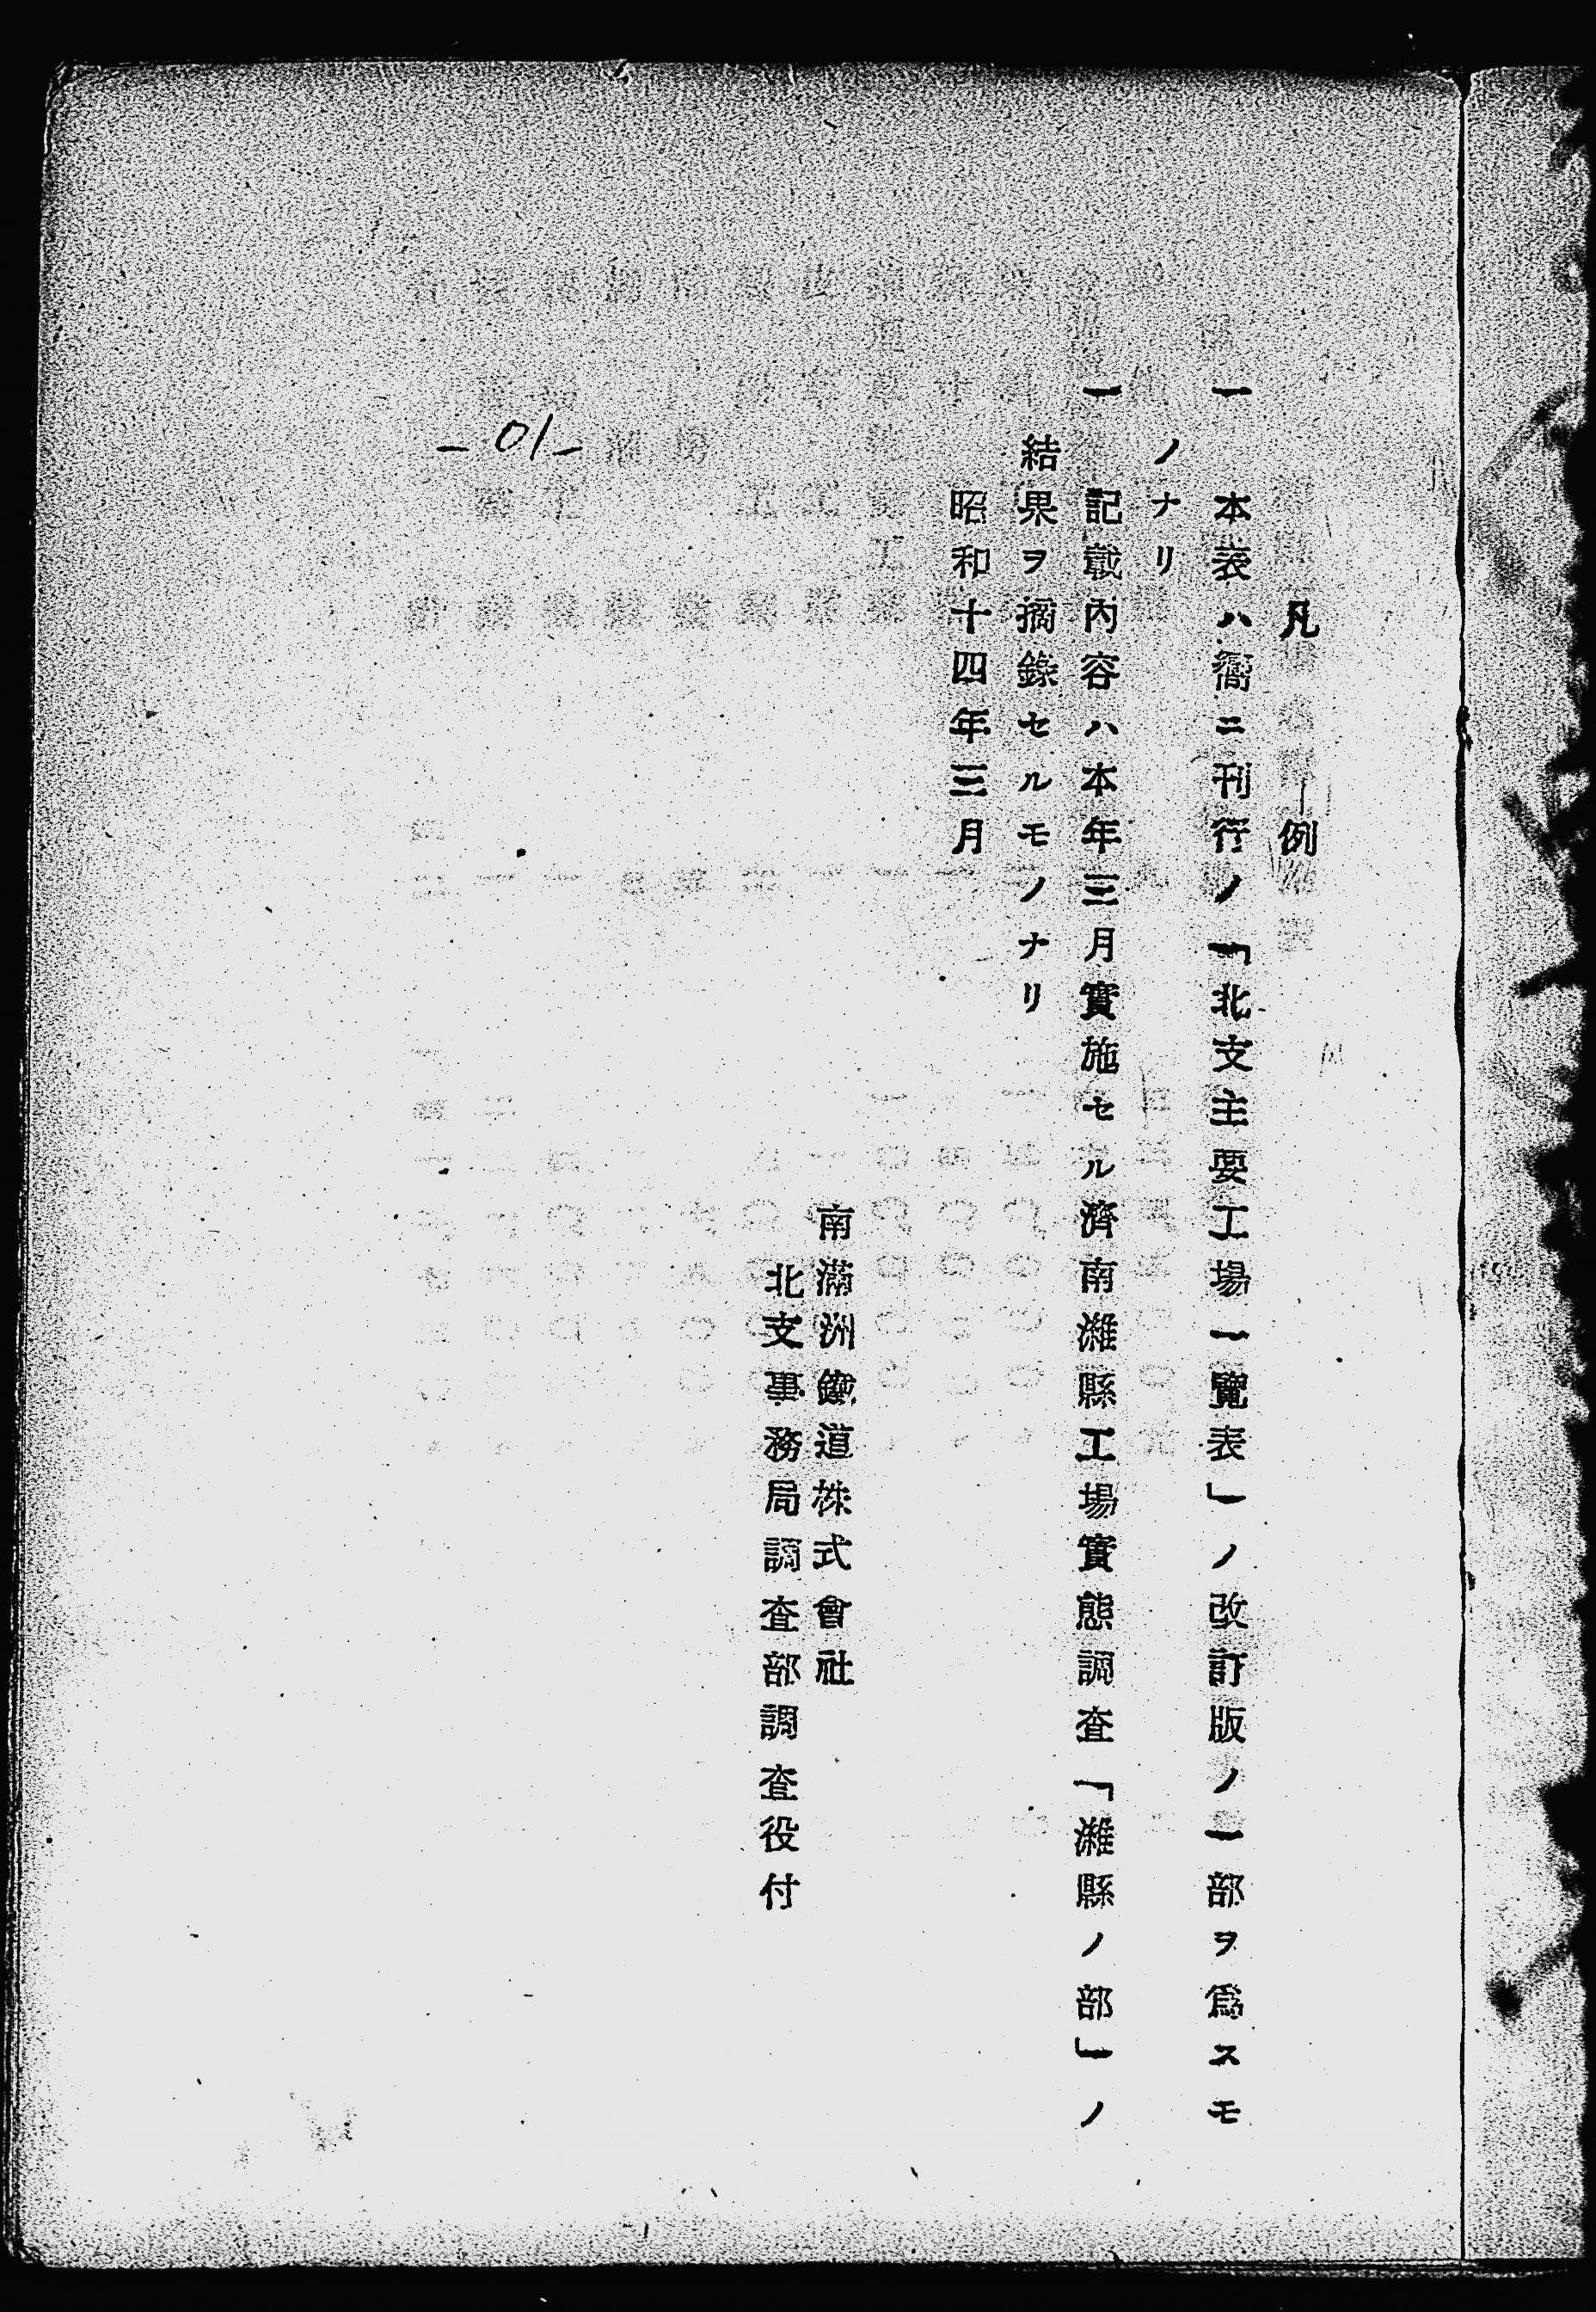 凡例
一 本表ハ嚮ニ刊行ノ「北支主要工場一覽表」ノ改訂版ノ一部ヲ爲スモ
ノナリ
一 記載內容ハ本年三月實施セル濟南濰縣工場實態調査「濰縣ノ部」ノ
結果ヲ摘錄セルモノナリ
昭和十四年三月
南滿洲鐵道株式會社
北支事務局調査部調査役付
-01-